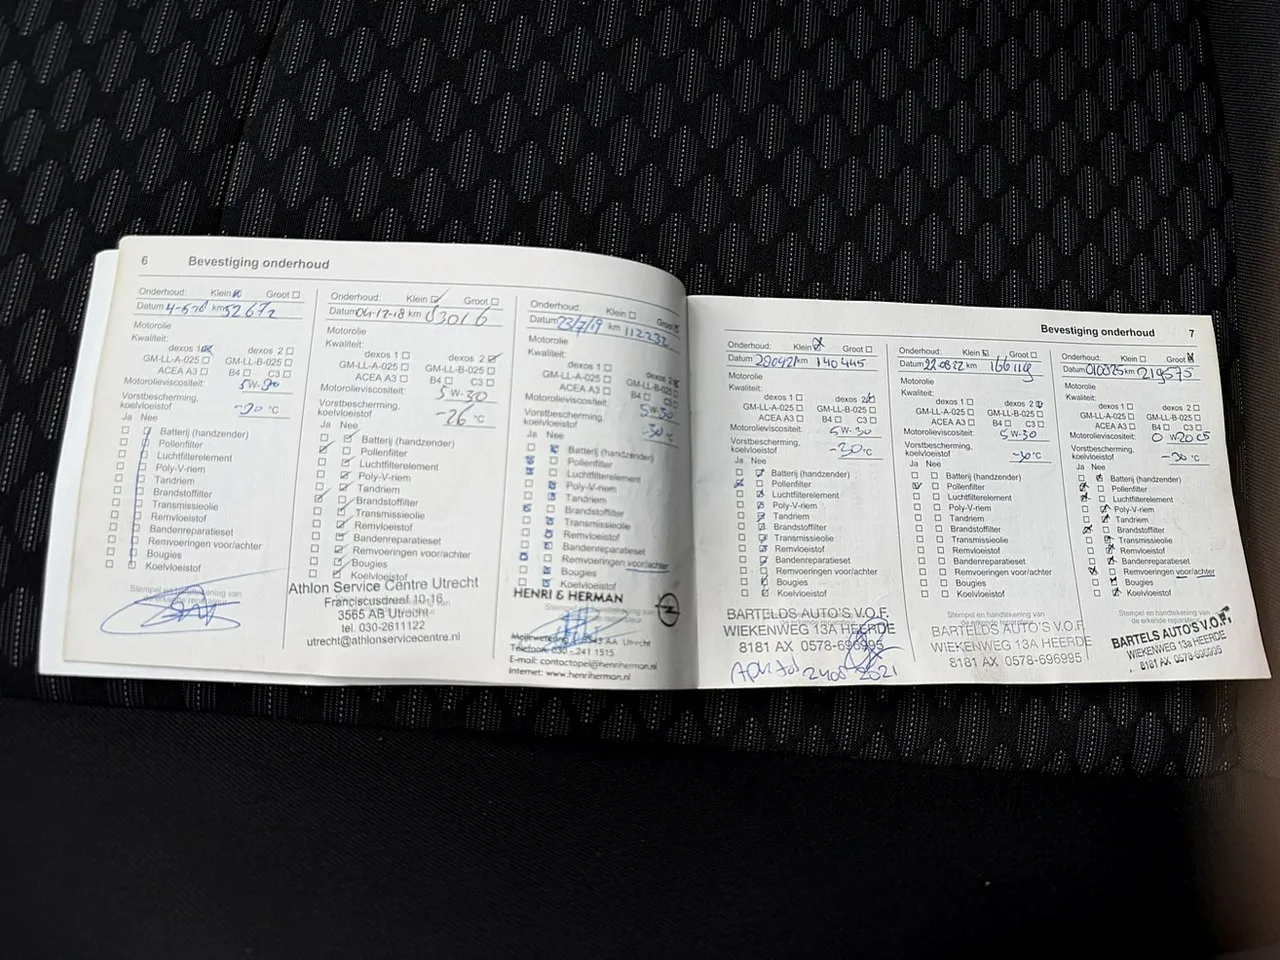 6 Bevestiging onderhoud
Onderhoud: Klein Groot
Datum km 52672
Motorolie
Kwaliteit:
dexos 1 dexos 2
GM-LL-A-025 GM-LL-B-025
ACEA A3 B4 C3
Motorolieviscositeit: 5W-30
Vorstbescherming,
koelvloeistof -20 °C
Ja Nee
Batterij (handzender)
Pollenfilter
Luchtfilterelement
Poly-V-riem
Tandriem
Brandstoffilter
Transmissieolie
Remvloeistof
Bandenreparatieset
Remvoeringen voor/achter
Bougies
Koelvloeistof
Stempel en handtekening van
Onderhoud: Klein Groot
Datum 04-12-18 km 83016
Motorolie
Kwaliteit:
dexos 1 dexos 2
GM-LL-A-025 GM-LL-B-025
ACEA A3 B4 C3
Motorolieviscositeit: 5W-30
Vorstbescherming,
koelvloeistof -26 °C
Ja Nee
Batterij (handzender)
Pollenfilter
Luchtfilterelement
Poly-V-riem
Tandriem
Brandstoffilter
Transmissieolie
Remvloeistof
Bandenreparatieset
Remvoeringen voor/achter
Bougies
Koelvloeistof
Athlon Service Centre Utrecht
Franciscusdreef 10-16
3565 AB Utrecht
tel. 030-2611122
utrecht@athlonservicecentre.nl
Onderhoud: Klein Groot
Datum 23/7/19 km 112232
Motorolie
Kwaliteit:
dexos 1 dexos 2
GM-LL-A-025 GM-LL-B-025
ACEA A3 B4 C3
Motorolieviscositeit: 5W-30
Vorstbescherming,
koelvloeistof -30 °C
Ja Nee
Batterij (handzender)
Pollenfilter
Luchtfilterelement
Poly-V-riem
Tandriem
Brandstoffilter
Transmissieolie
Remvloeistof
Bandenreparatieset
Remvoeringen voor/achter
Bougies
Koelvloeistof
HENRI & HERMAN
AA Utrecht
Telefoon: 030 - 241 1515
E-mail: contactopel@henriherman.nl
Internet: www.henriherman.nl
Bevestiging onderhoud 7
Onderhoud: Klein Groot
Datum 220421 km 140445
Motorolie
Kwaliteit:
dexos 1 dexos 2
GM-LL-A-025 GM-LL-B-025
ACEA A3 B4 C3
Motorolieviscositeit: 5W-30
Vorstbescherming,
koelvloeistof -30 °C
Ja Nee
Batterij (handzender)
Pollenfilter
Luchtfilterelement
Poly-V-riem
Tandriem
Brandstoffilter
Transmissieolie
Remvloeistof
Bandenreparatieset
Remvoeringen voor/achter
Bougies
Koelvloeistof
BARTELDS AUTO'S V.O.F.
WIEKENWEG 13A HEERDE
8181 AX 0578-696995
2021
Onderhoud: Klein Groot
Datum 220822 km 166119
Motorolie
Kwaliteit:
dexos 1 dexos 2
GM-LL-A-025 GM-LL-B-025
ACEA A3 B4 C3
Motorolieviscositeit: 5W-30
Vorstbescherming,
koelvloeistof -30 °C
Ja Nee
Batterij (handzender)
Pollenfilter
Luchtfilterelement
Poly-V-riem
Tandriem
Brandstoffilter
Transmissieolie
Remvloeistof
Bandenreparatieset
Remvoeringen voor/achter
Bougies
Koelvloeistof
Stempel en handtekening van
de erkende reparateur
BARTELDS AUTO'S V.O.F.
WIEKENWEG 13A HEERDE
8181 AX 0578-696995
Onderhoud: Klein Groot
Datum 010825 km 219575
Motorolie
Kwaliteit:
dexos 1 dexos 2
GM-LL-A-025 GM-LL-B-025
ACEA A3 B4 C3
Motorolieviscositeit: 0 W20 C5
Vorstbescherming,
koelvloeistof -30 °C
Ja Nee
Batterij (handzender)
Pollenfilter
Luchtfilterelement
Poly-V-riem
Tandriem
Brandstoffilter
Transmissieolie
Remvloeistof
Bandenreparatieset
Remvoeringen voor/achter
Bougies
Koelvloeistof
Stempel en handtekening van
BARTELDS AUTO'S V.O.F.
WIEKENWEG 13a HEERDE
8181 AX 0578-696995